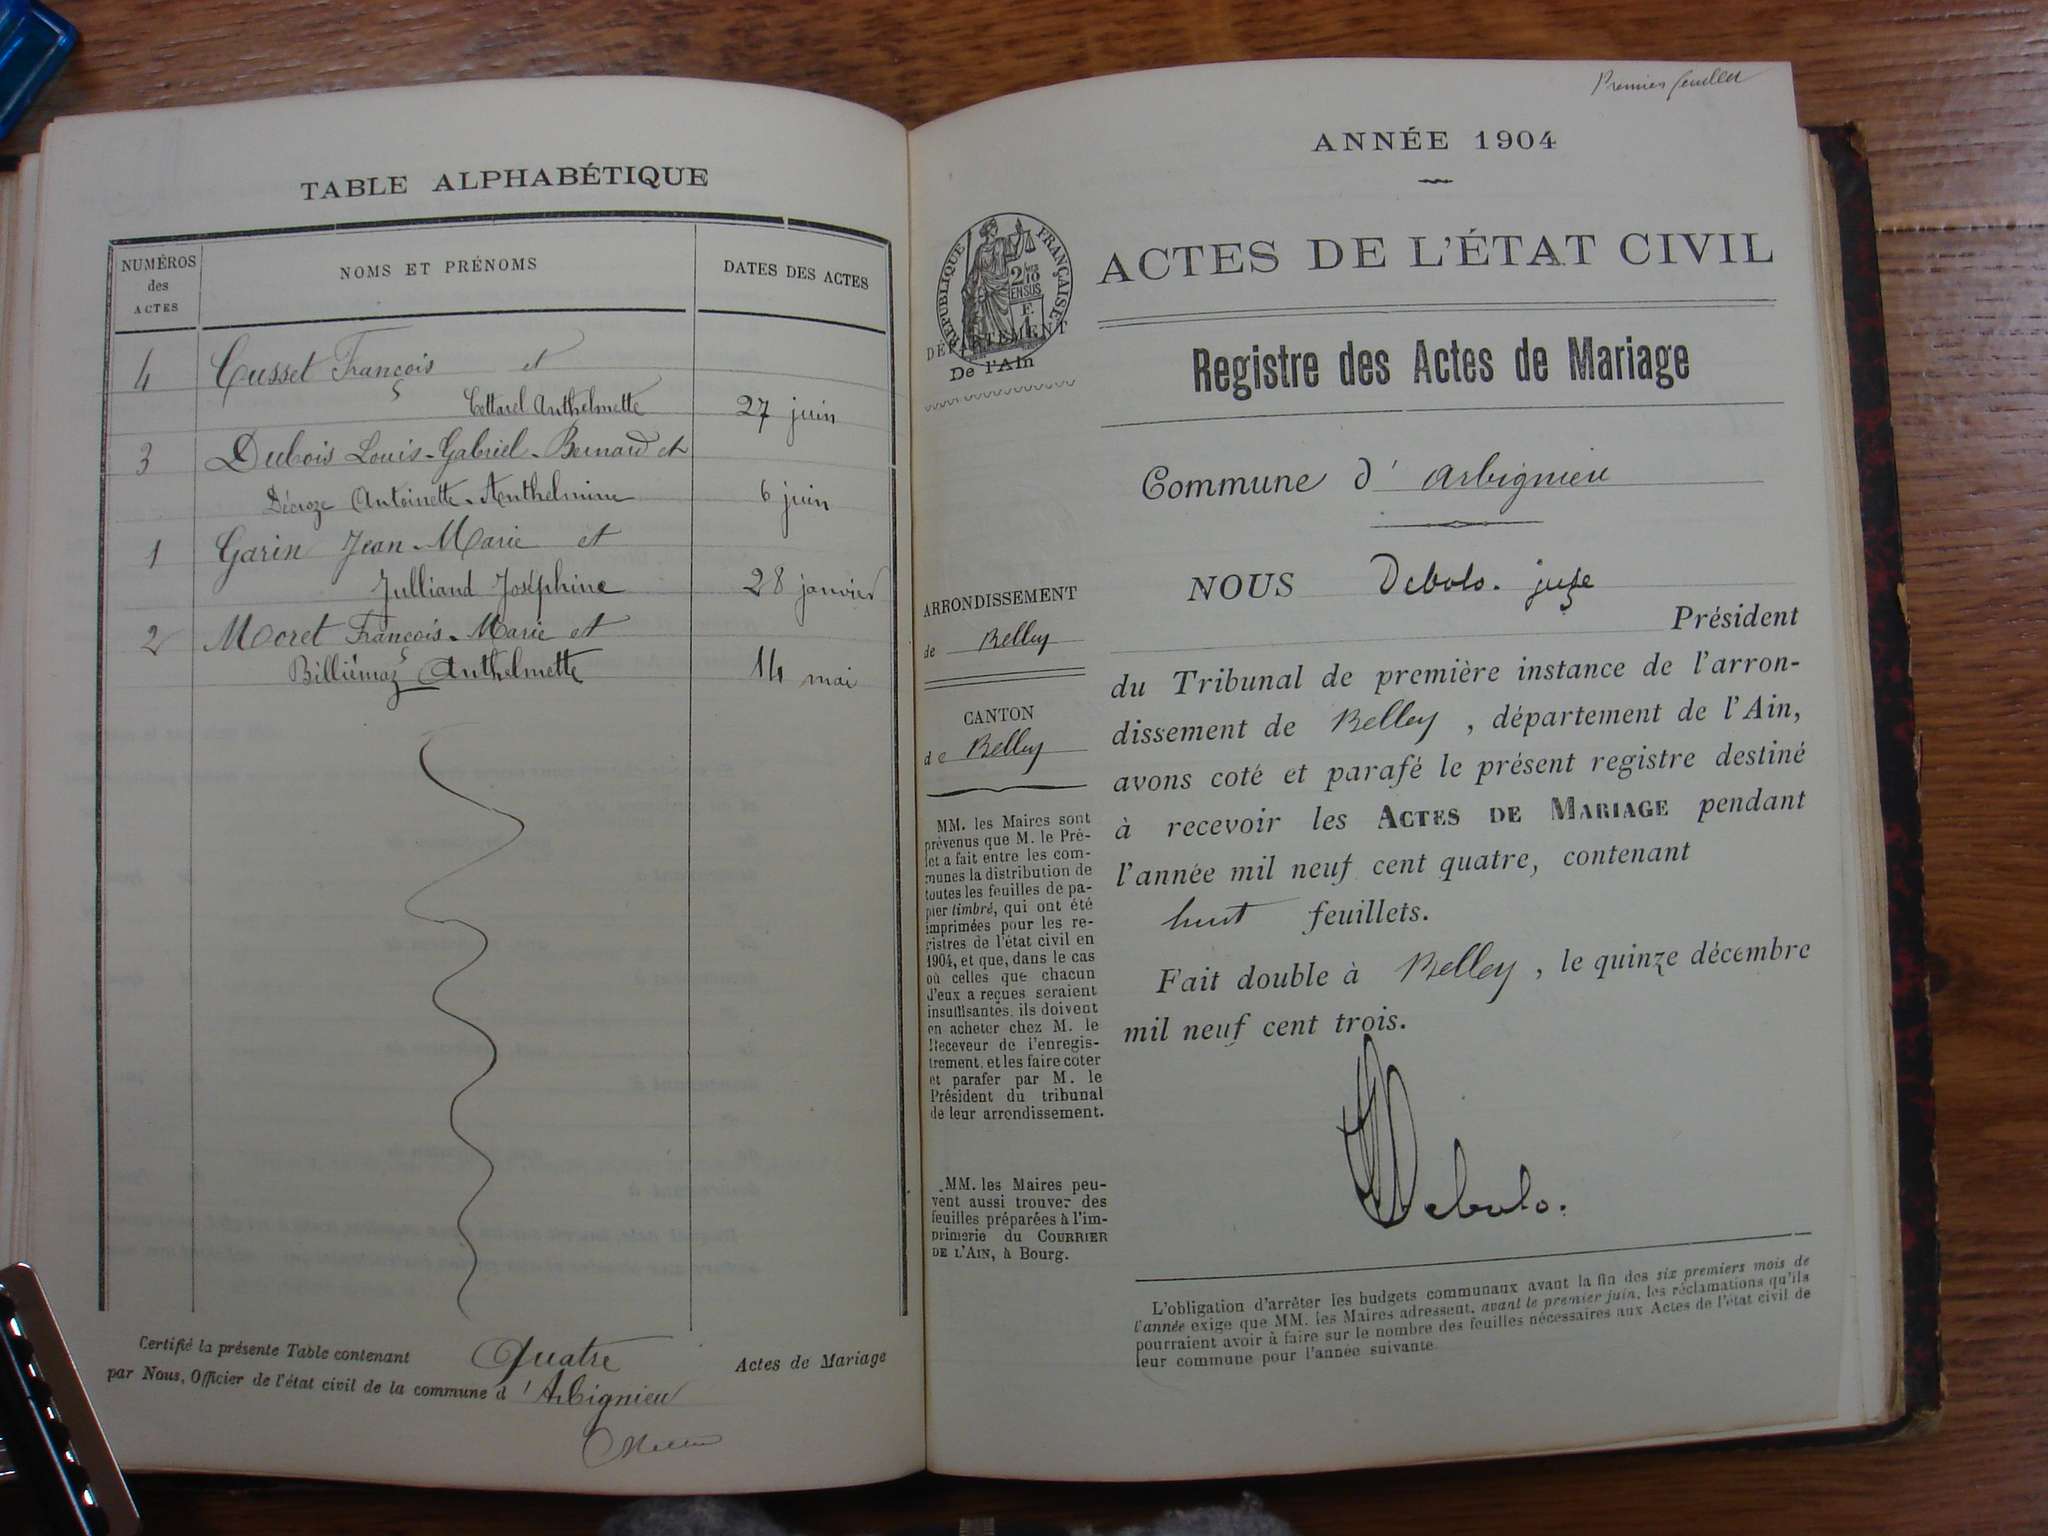 TABLE ALPHABÉTIQUE
NUMÉROS des ACTES
NOMS ET PRÉNOMS
DATES DES ACTES
4 Cusset François et
Cettarel Anthelmette 27 juin
3 Dubois Louis-Gabriel-Bernard et
Décroze Antoinette-Anthelmine 6 juin
1 Garin Jean-Marie et
Julliand Joséphine 28 janvier
2 Moret François-Marie et
Billiémaz Anthelmette 14 mai
Certifié la présente Table contenant Quatre Actes de Mariage
par Nous, Officier de l'état civil de la commune d'Arbignieu
Premier feuillet
ANNÉE 1904
RÉPUBLIQUE FRANÇAISE
2/10 EN SUS
DÉPARTEMENT
De l'Ain
ACTES DE L'ÉTAT CIVIL
Registre des Actes de Mariage
Commune d'Arbignieu
ARRONDISSEMENT
de Belley
CANTON
de Belley
MM. les Maires sont
prévenus que M. le Pré-
fet a fait entre les com-
munes la distribution de
toutes les feuilles de pa-
pier timbré, qui ont été
imprimées pour les re-
gistres de l'état civil en
1904, et que, dans le cas
où celles que chacun
d'eux a reçues seraient
insuffisantes, ils doivent
en acheter chez M. le
Receveur de l'enregis-
trement, et les faire coter
et parafer par M. le
Président du tribunal
de leur arrondissement.
MM. les Maires peu-
vent aussi trouver des
feuilles préparées à l'im-
primerie du COURRIER
DE L'AIN, à Bourg.
NOUS Debolo. juge
Président
du Tribunal de première instance de l'arron-
dissement de Belley, département de l'Ain,
avons coté et parafé le présent registre destiné
à recevoir les ACTES DE MARIAGE pendant
l'année mil neuf cent quatre, contenant
huit feuillets.
Fait double à Belley, le quinze décembre
mil neuf cent trois.
Debolo.
L'obligation d'arrêter les budgets communaux avant la fin des six premiers mois de
l'année exige que MM. les Maires adressent, avant le premier juin, les réclamations qu'ils
pourraient avoir à faire sur le nombre des feuilles nécessaires aux Actes de l'état civil de
leur commune pour l'année suivante.